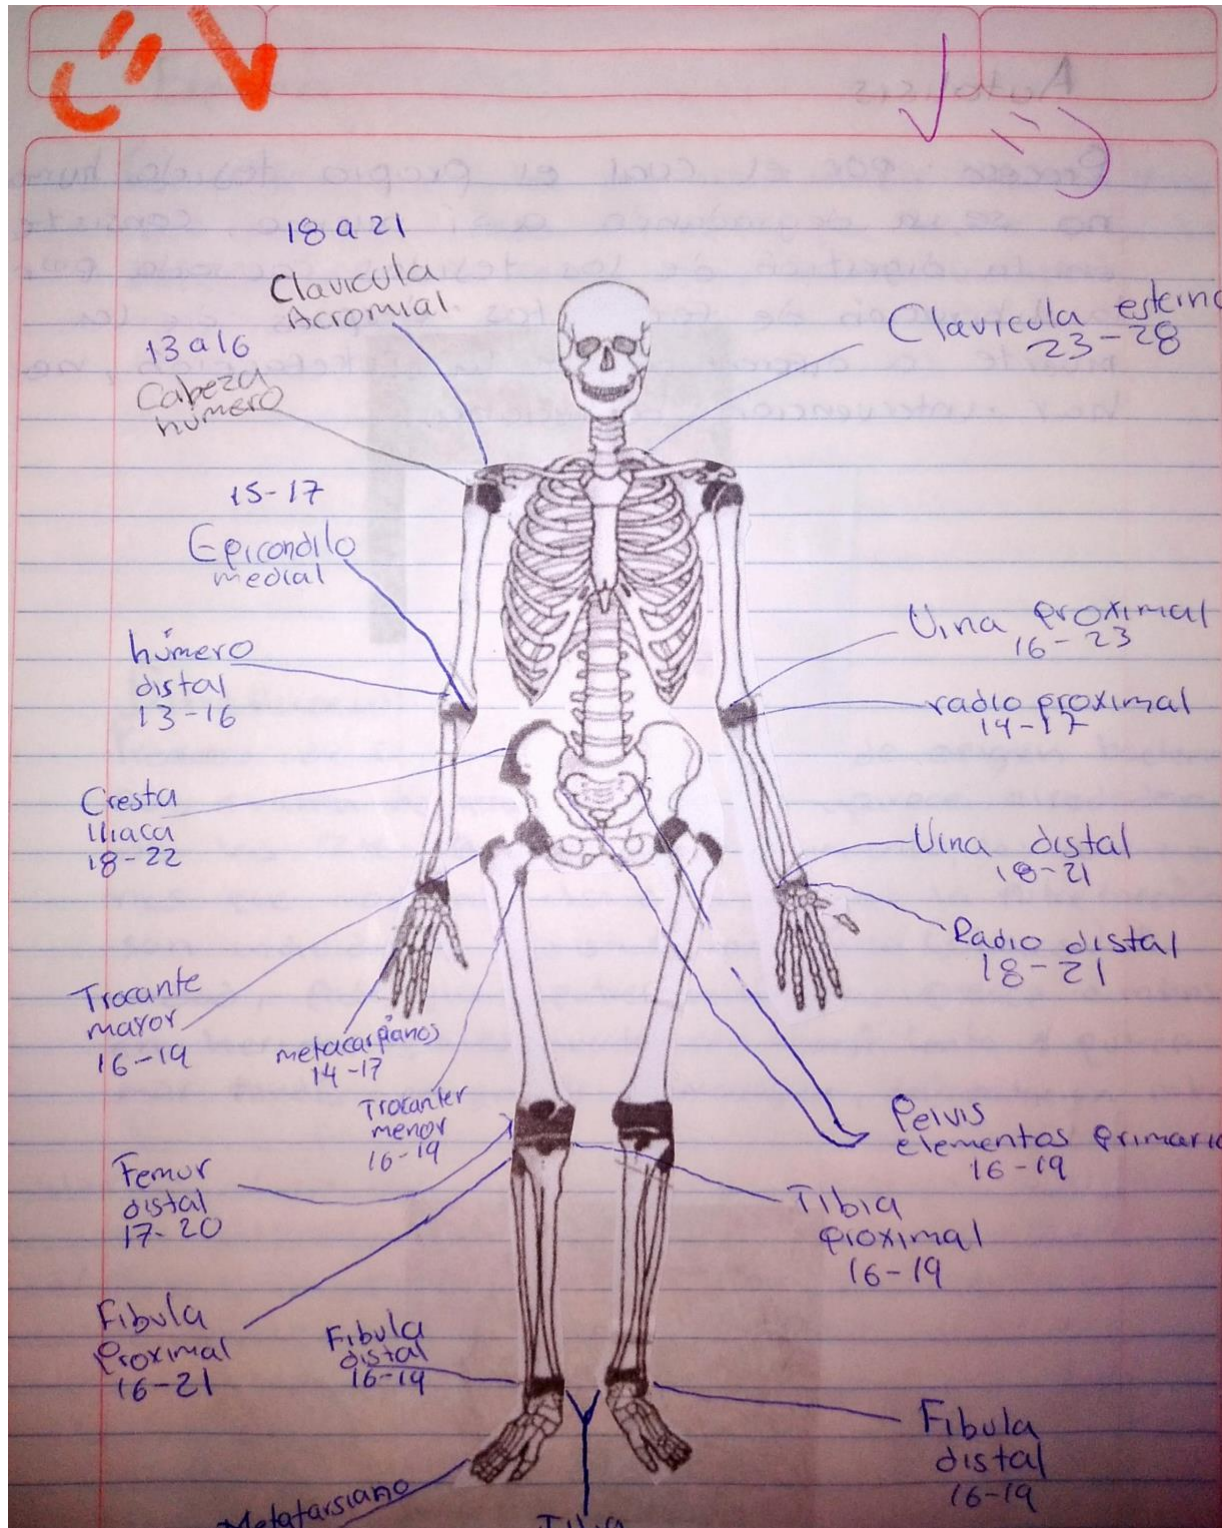 18 a 21
Clavicula
Acromial
Clavicula esterno
23-28
13 a 16
Cabeza
húmero
15-17
Epicondilo
medial
húmero
distal
13-16
Ulna proximal
16-23
radio proximal
14-17
Cresta
Iliaca
18-22
Ulna distal
18-21
Radio distal
18-21
Trocante
mayor
16-19
metacarpianos
14-17
Trocanter
menor
16-19
Pelvis
elementos primario
16-19
Femur
distal
17-20
Tibia
proximal
16-19
Fibula
proximal
16-21
Fibula
distal
16-19
Fibula
distal
16-19
Metatarsiano